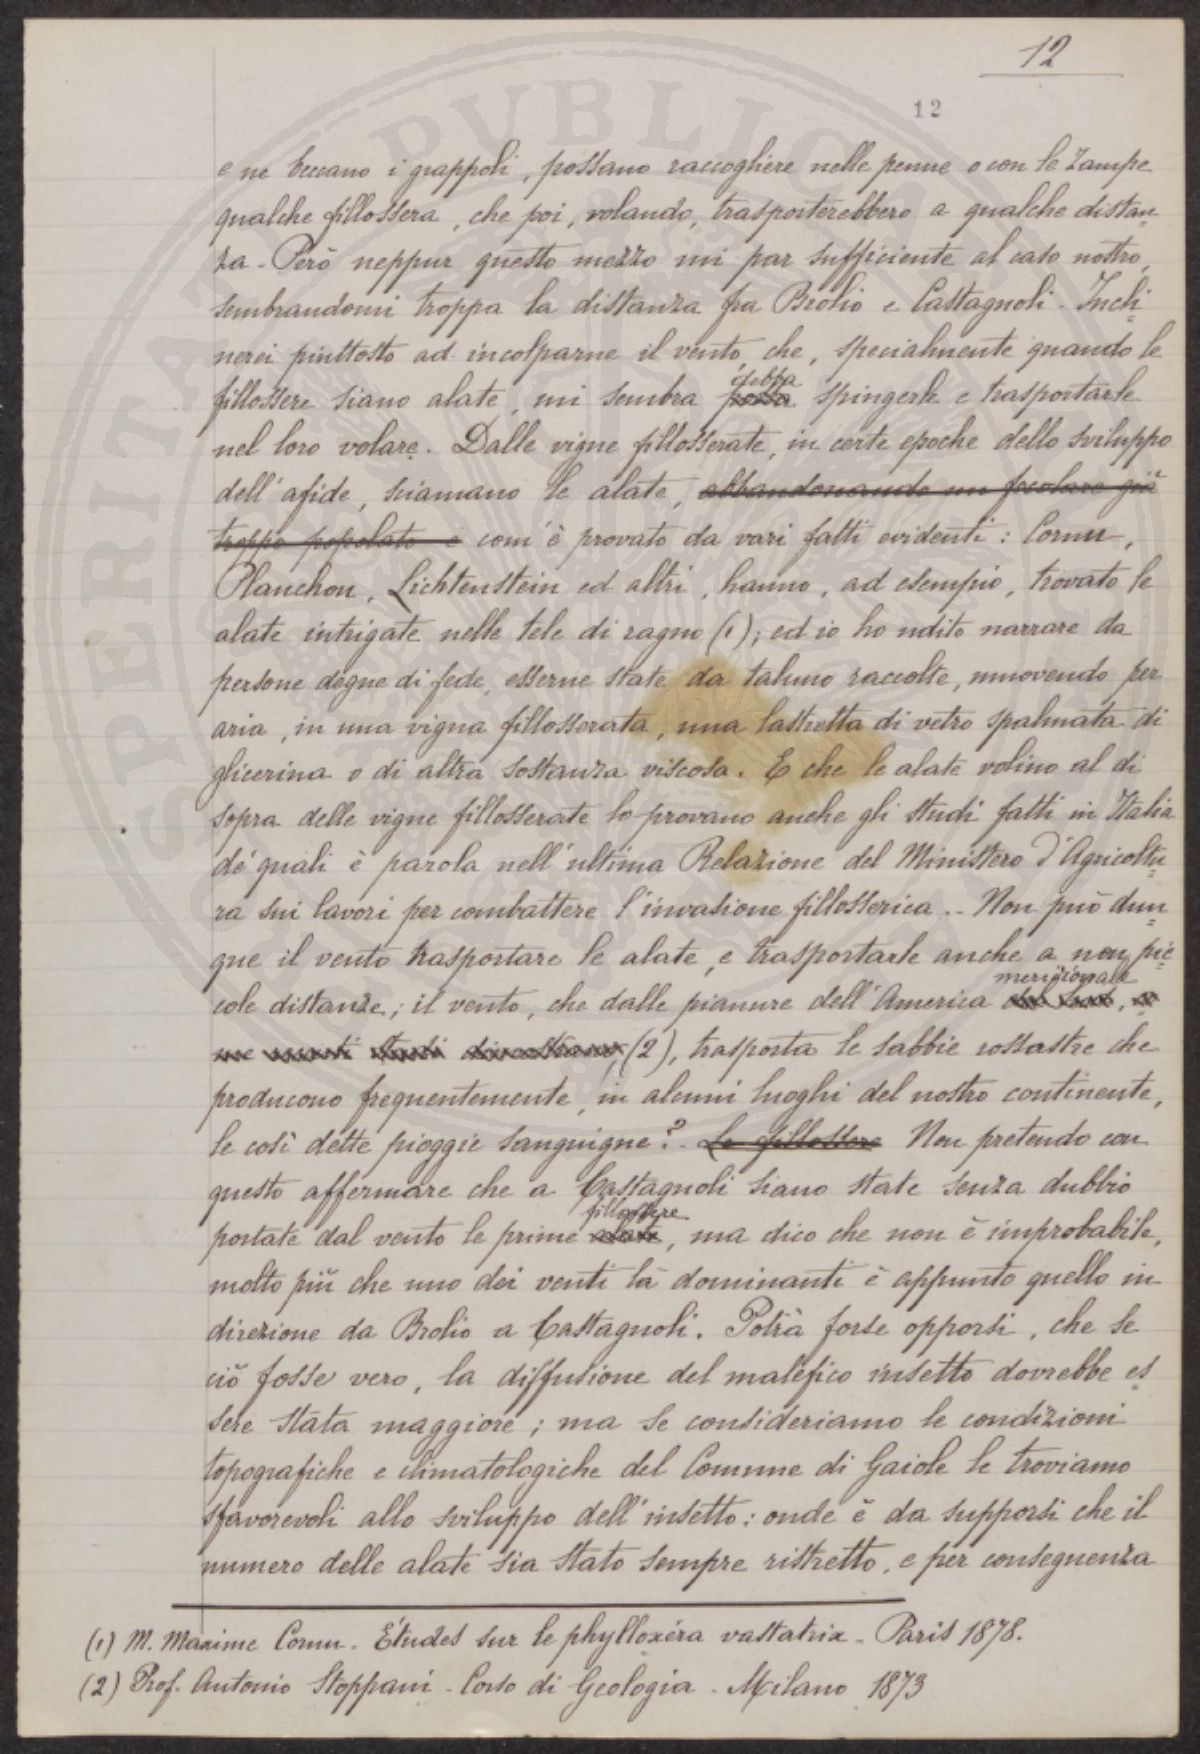 12
12
e ne beccano i grappoli, possano raccogliere nelle penne o con le zampe
qualche fillossera, che poi, volando, trasporterebbero a qualche distan
za. Però neppur questo mezzo mi par sufficiente al caso nostro,
sembrandomi troppa la distanza fra Brolio e Castagnoli. Incli
nerei piuttosto ad incolparne il vento, che, specialmente quando le
debba
fillossere siano alate, mi sembra possa spingerle e trasportarle
nel loro volare. Dalle vigne fillosserate, in certe epoche dello sviluppo
dell'afide, sciamano le alate, abbandonando un focolare già
troppo popolato e com'è provato da vari fatti evidenti: Cornu,
Planchon, Lichtenstein ed altri, hanno, ad esempio, trovato le
alate intrigate nelle tele di ragno (1); ed io ho udito narrare da
persone degne di fede, esserne state da taluno raccolte, muovendo per
aria, in una vigna fillosserata, una lastretta di vetro spalmata di
glicerina o di altra sostanza viscosa. E che le alate volino al di
sopra delle vigne fillosserate lo provano anche gli studi fatti in Italia
de' quali è parola nell'ultima Relazione del Ministero d'Agricoltu
ra sui lavori per combattere l'invasione fillosserica.. Non può dun
que il vento trasportare le alate, e trasportarle anche a non pic
meridionale
cole distanze; il vento, che dalle pianure dell'America del Sud, co
me recenti studi dimostrano, (2), trasporta le sabbie rossastre che
producono frequentemente, in alcuni luoghi del nostro continente,
le così dette pioggie sanguigne? Le fillossere Non pretendo con
questo affermare che a Castagnoli siano state senza dubbio
fillossere
portate dal vento le prime alate, ma dico che non è improbabile,
molto più che uno dei venti là dominanti è appunto quello in
direzione da Brolio a Castagnoli. Potrà forse opporsi, che se
ciò fosse vero, la diffusione del malefico insetto dovrebbe es
sere stata maggiore; ma se consideriamo le condizioni
topografiche e climatologiche del Comune di Gaiole le troviamo
sfavorevoli allo sviluppo dell'insetto: onde è da supporsi che il
numero delle alate sia stato sempre ristretto, e per conseguenza
(1) M. Maxime Cornu. Études sur le phylloxéra vastatrix. Paris 1878.
(2) Prof. Antonio Stoppani. Corso di Geologia. Milano 1873